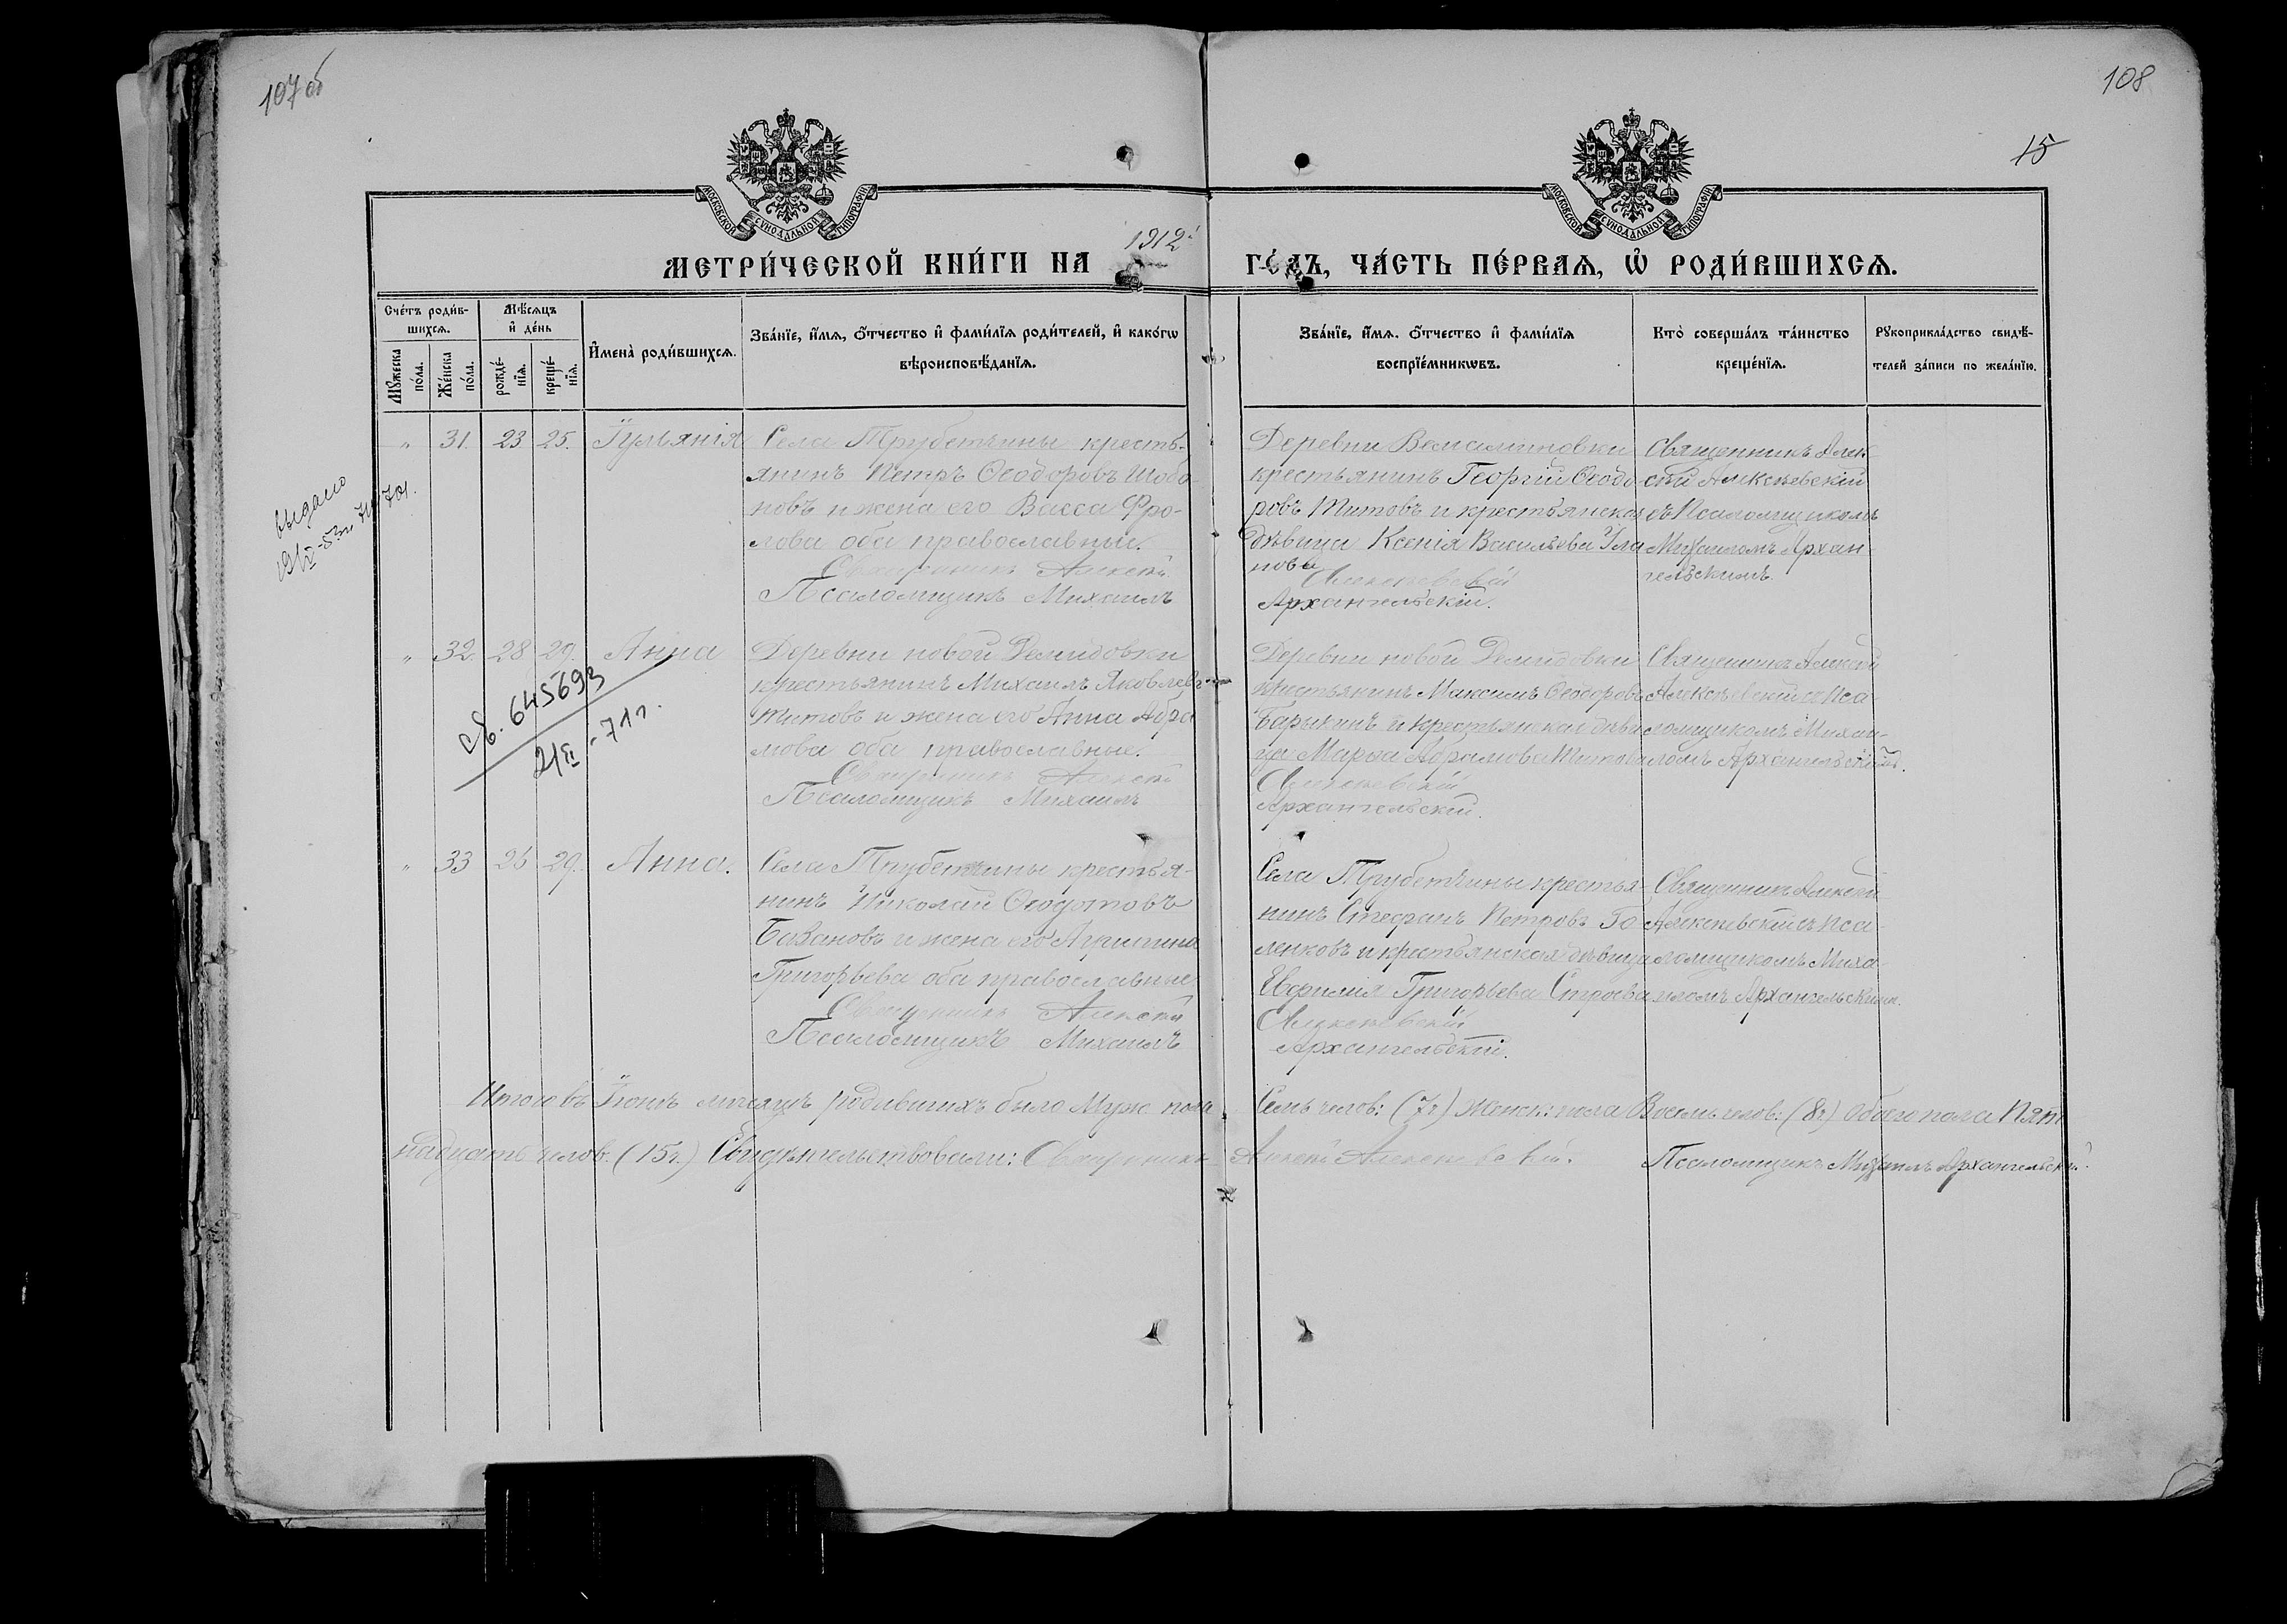 107об
108
15
МОСКОВСКОЙ СѴНОДАЛЬНОЙ ТИПОГРАФІИ
МОСКОВСКОЙ СѴНОДАЛЬНОЙ ТИПОГРАФІИ
МЕТРИ́ЧЕСКОЙ КНИ́ГИ НА 1912й ГО́ДЪ, ЧА́СТЬ ПЕ́РВАѦ, Ѽ РОДИ́ВШИХСѦ.
Сче́тъ роди́в-
шихсѧ.
Мꙋжеска по́ла.
Же́нска по́ла.
Мѣ́сѧцъ
и҆ де́нь
рожде́-
нїѧ.
креще́-
нїѧ.
И҆мена̀ роди́вшихсѧ.
Зва́нїе, и҆́мѧ, ѻ҆́тчество и҆ фами́лїѧ роди́телей, и҆ како́гѡ
вѣроисповѣ́данїѧ.
Зва́нїе, и҆́мѧ. ѻ҆́тчество и҆ фами́лїѧ
воспрїе́мникѡвъ.
Кто̀ соверша́лъ та́инство
креще́нїѧ.
Рꙋкоприкла́дство свидѣ́-
телей за́писи по жела́нїю.
" 31. 23 25. Іуліанія
Села Трубетчины кресть-
янинъ Петръ Ѳеодоровъ Шобо-
новъ и жена его Васса Фро-
лова оба православные.
Священникъ Алексѣй
Псаломщикъ Михаилъ
Деревни
крестьянинъ Георгій Ѳеодо-
ровъ Титовъ и крестьянская
дѣвица Ксенія Васильева Ула
нова
Алексѣевскій
Архангельскій.
Священникъ Алек-
сѣй Алексѣевскій
съ Псаломщикомъ
Михаиломъ Архан-
гельскимъ
выдано
" 32. 28 29. Анна
св. 645693
2/II-71г.
Деревни новой Демидовки
крестьянинъ Михаилъ Яковлевъ
Титовъ и жена его Анна Абра
мова оба православные.
Священникъ Алексѣй
Псаломщикъ Михаилъ
Деревни новой Демидовки
крестьянинъ Максимъ Ѳеодоровъ
Барыкинъ и крестьянская дѣви
ца Марѳа Абрамова Титова
Алексѣевскій
Архангельскій.
Священникъ Алексѣй
Алексѣевскій съ Пса-
ломщикомъ Михаи-
ломъ Архангельскимъ.
" 33 26 29. Анна.
Села Трубетчины крестья-
нинъ Николай Ѳеодотовъ
Базановъ и жена его Агрипина
Григорьева оба православные
Священникъ Алексѣй
Псаломщикъ Михаилъ
Села Трубетчины крестья-
нинъ Стефанъ Петровъ Го
ленковъ и крестьянская дѣвица
Евфимія Григорьева Строева
Алексѣевскій
Архангельскій.
Священникъ Алексѣй
Алексѣевскій съ Пса-
ломщикомъ Миха-
иломъ Архангельскимъ.
Итого въ Іюнѣ мѣсяцѣ родившихъ было Муж. пола Семь челов: (7ч) Женск: пола Восемь челов: (8ч) Обоего пола Пят
надцать челов. (15ч.) Свидѣтельствовали: Священникъ Алексѣй Алексѣевскій. Псаломщикъ Михаилъ Архангельскій.